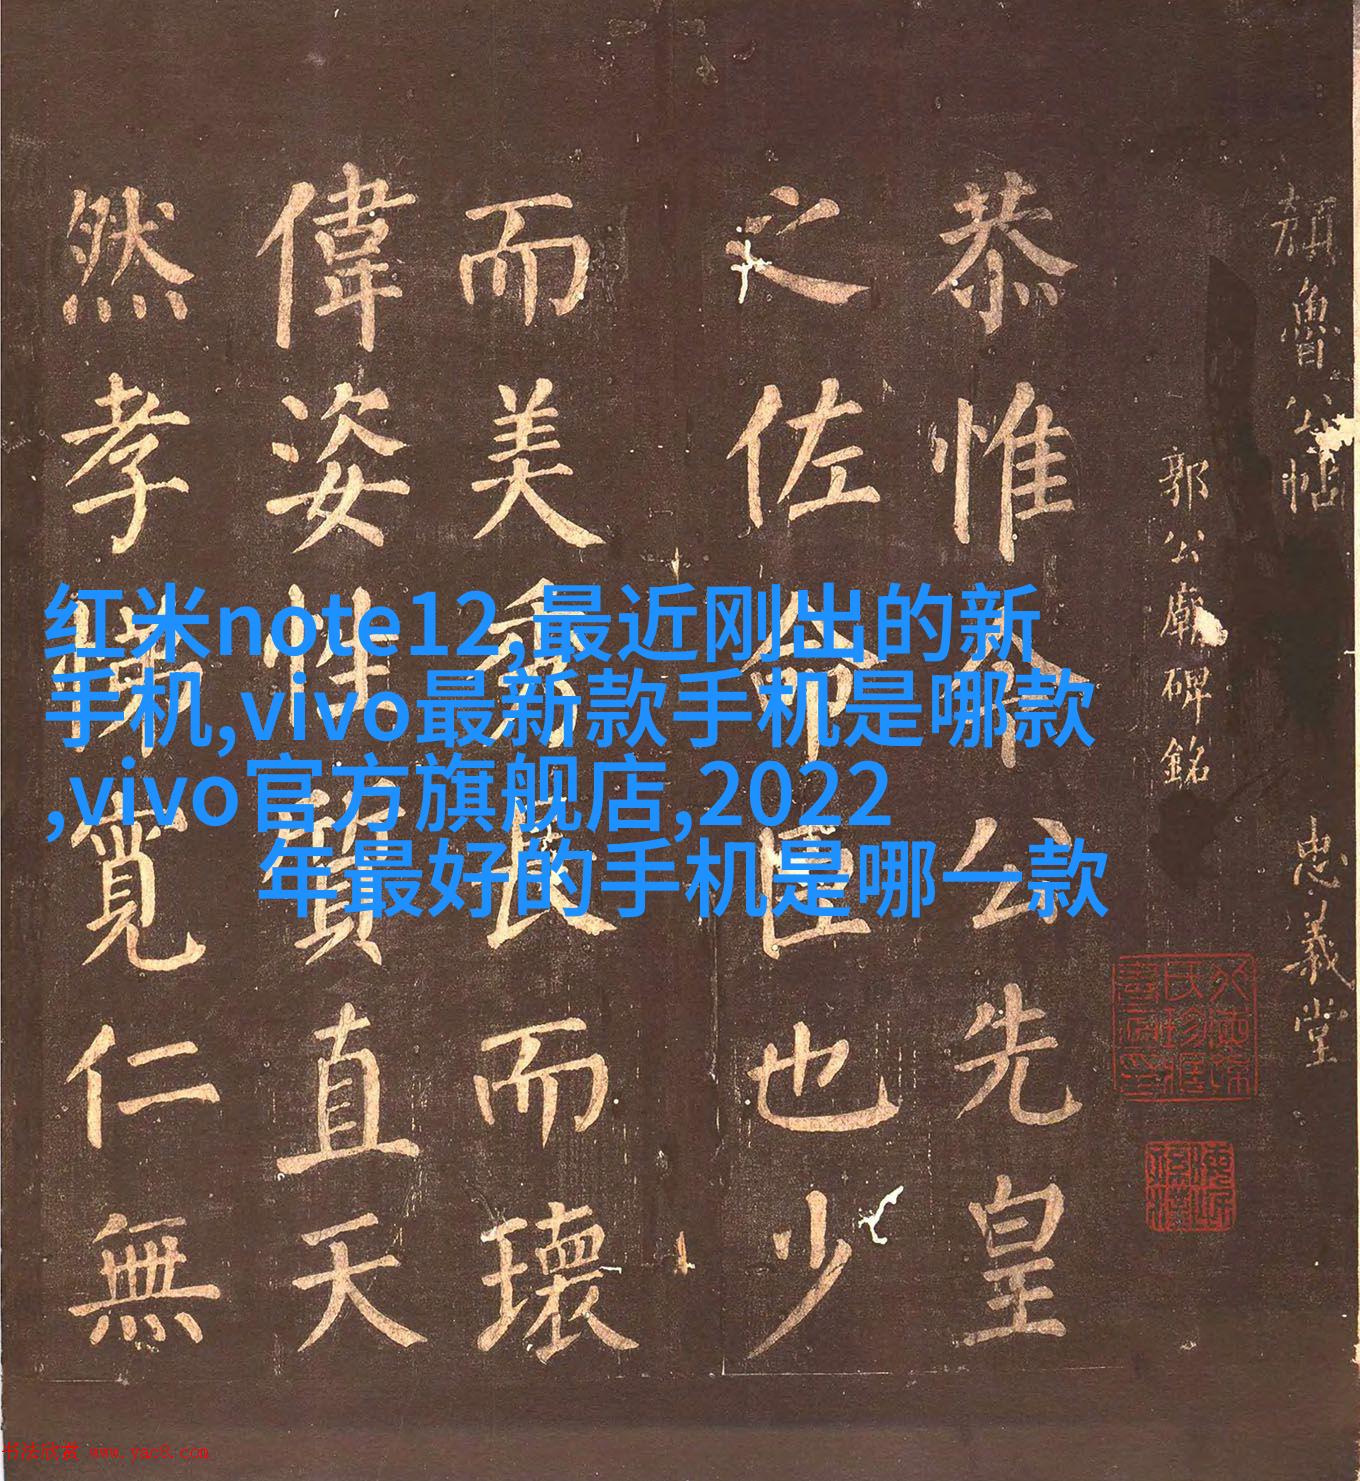 红米note12,最近刚出的新
手机,vivo最新款手机是哪款
,vivo官方旗舰店,2022
年最好的手机是哪一款
顏魯公帖 忠義堂
郭公廟碑銘
恭惟令公先皇
之佐命臣也少
而美秀長而瓌
偉姿性質直天
然孝悌寬仁無
书法欣赏 www.yac8.com